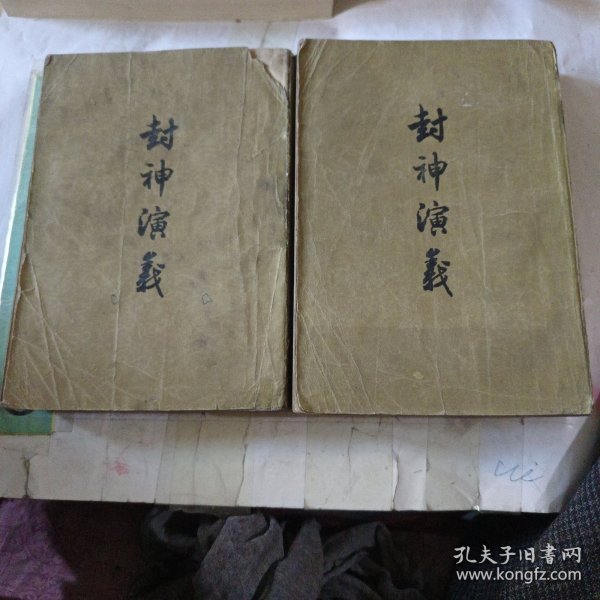 封神演義
封神演義
孔夫子旧書网
www.kongfz.com